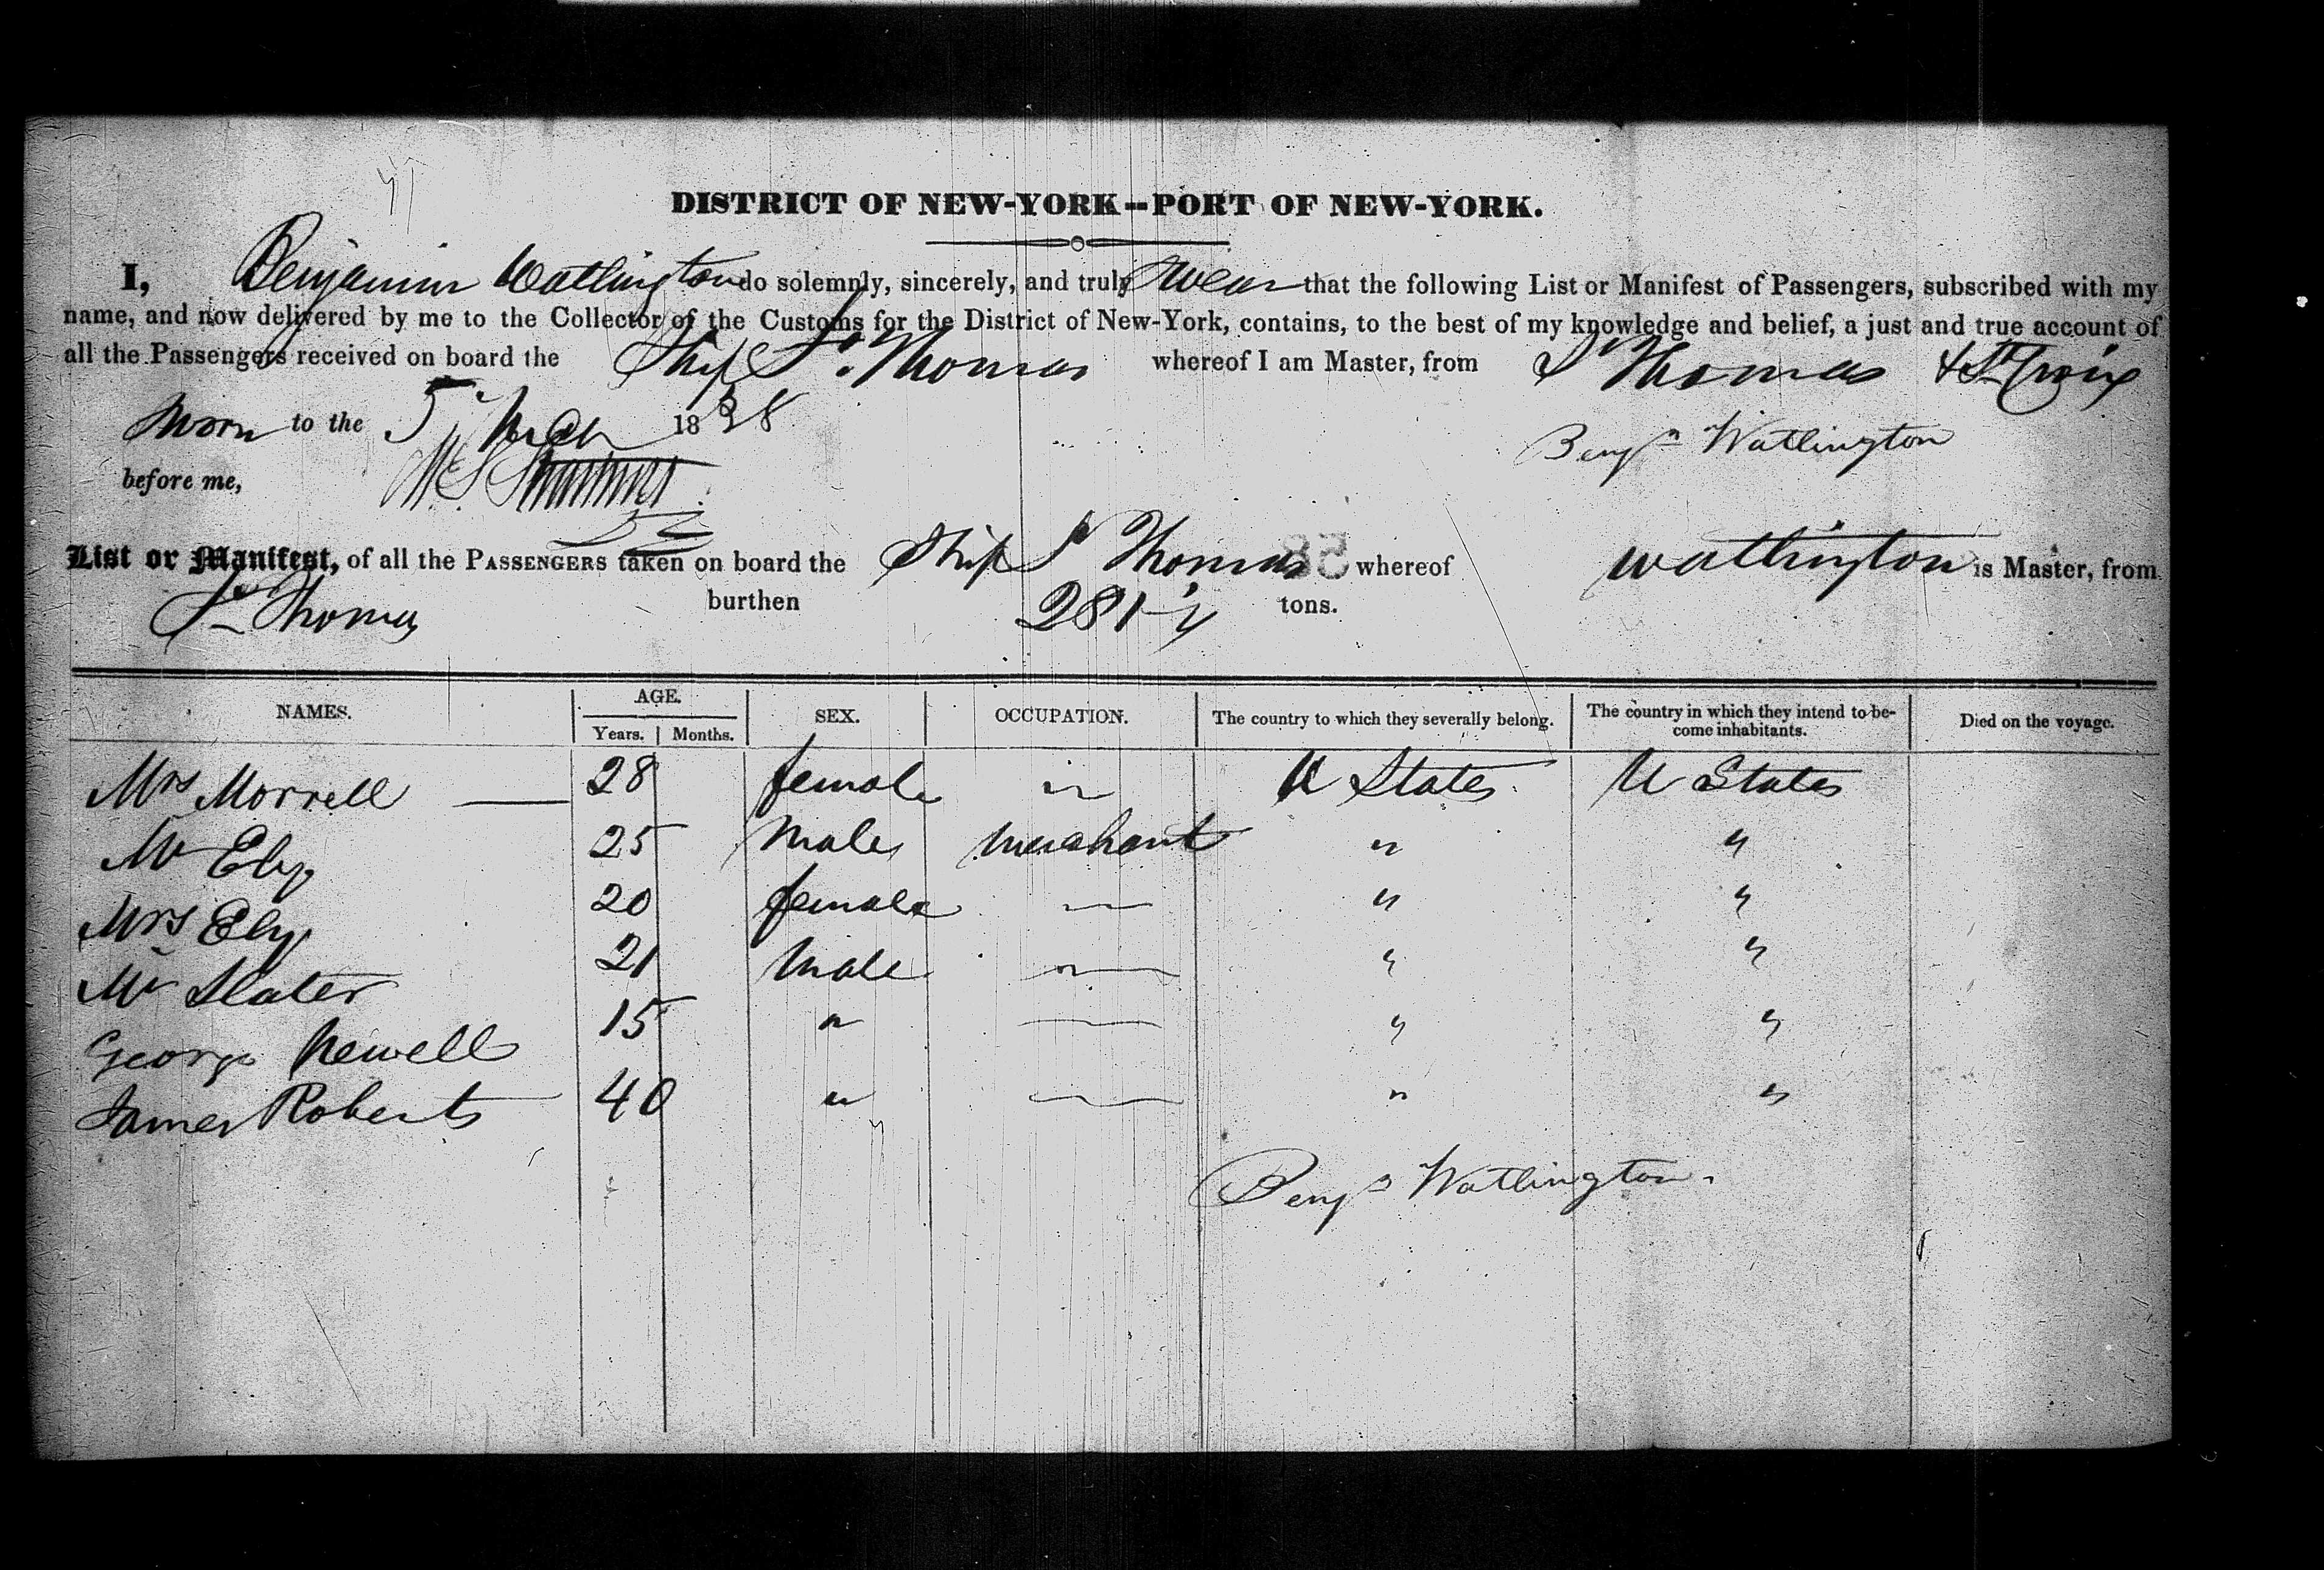 DISTRICT OF NEW-YORK--PORT OF NEW-YORK.
I, Benjamin Watlington do solemnly, sincerely, and truly swear that the following List or Manifest of Passengers, subscribed with my
name, and now delivered by me to the Collector of the Customs for the District of New-York, contains, to the best of my knowledge and belief, a just and true account of
all the Passengers received on board the Ship St. Thomas whereof I am Master, from St Thomas & St Croix
Sworn to the 5th March 1838
Benjn Watlington
before me,
List or Manifest, of all the PASSENGERS taken on board the Ship St Thomas 58 whereof Watlington is Master, from
St Thomas burthen 281 tons.
NAMES. AGE. Years. Months. SEX. OCCUPATION. The country to which they severally belong. The country in which they intend to become inhabitants. Died on the voyage.
Mrs Morrell — 28 female " U States U States
Mr Ely 25 Male Merchant " "
Mrs Ely 20 female — " "
Mr Slater 21 Male " " "
George Newell 15 " — " "
James Roberts 40 " — " "
Benjn Watlington.